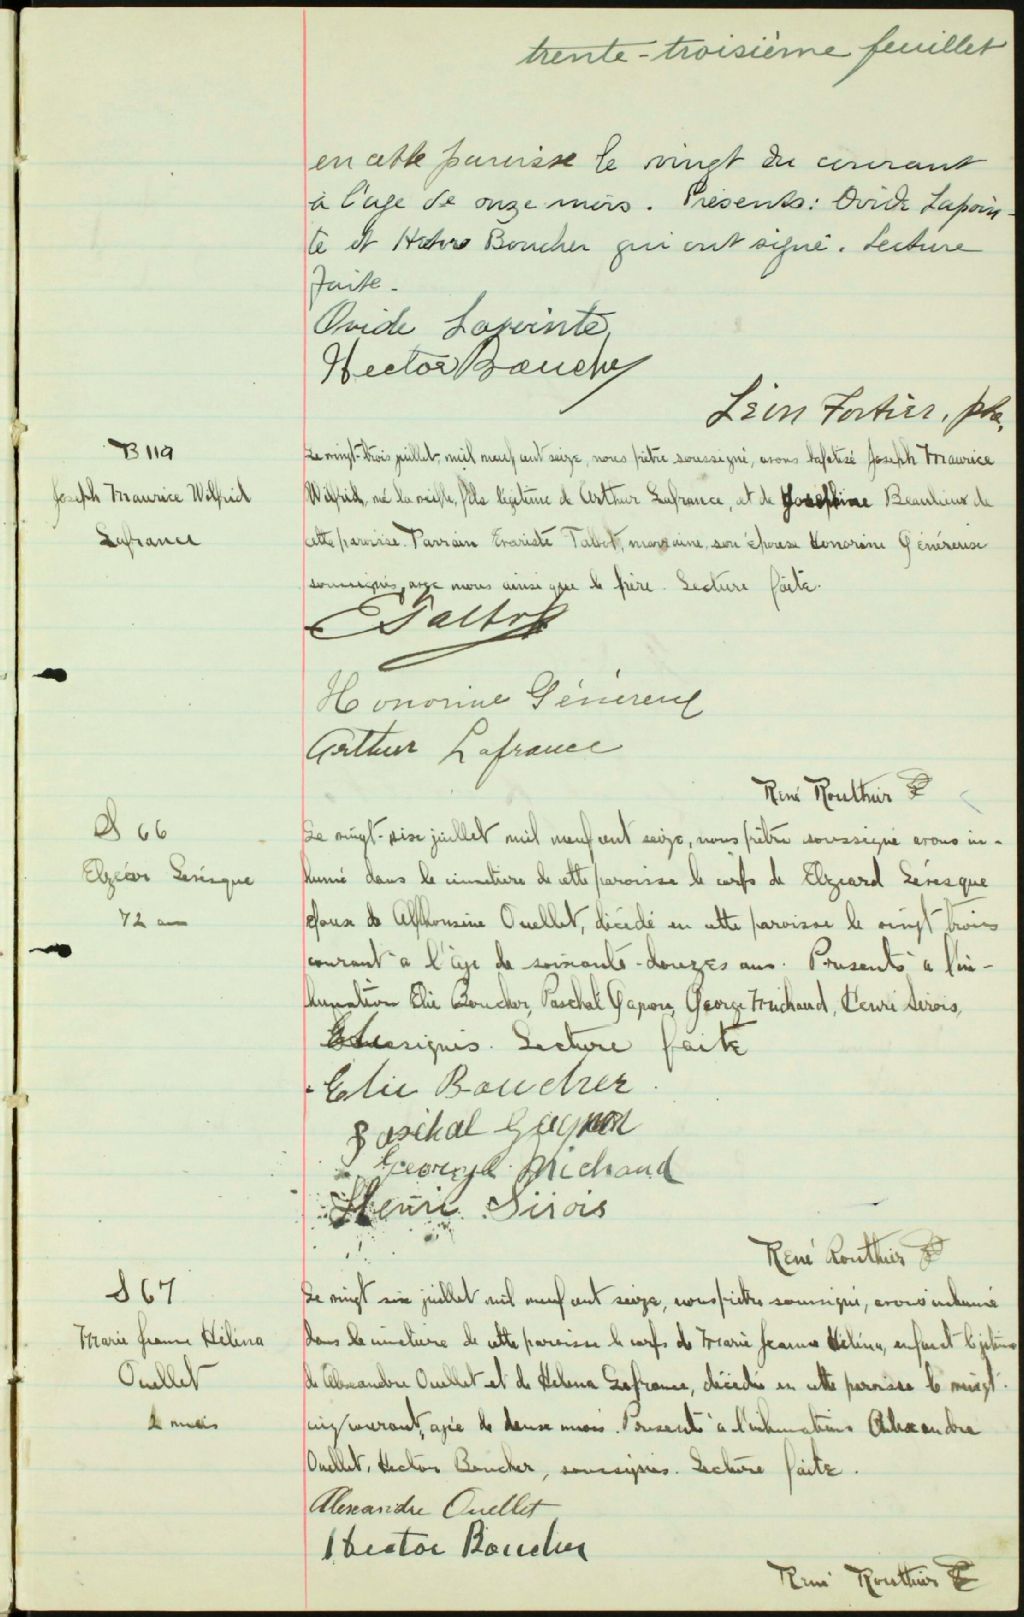 trente-troisième feuillet
en cette paroisse le vingt du courant
à l'age de onze mois. Présents: Ovide Lapoin-
te et Hector Boucher qui ont signé. Lecture
faite.
Ovide Lapointe
Hector Boucher
Léon Fortier, ptre.
B 119
Joseph Maurice Wilfrid
Lafrance
Le vingt-trois juillet, mil neuf cent seize, nous prêtre soussigné, avons baptisé Joseph Maurice
Wilfrid, né la veille, fils légitime de Arthur Lafrance, et de Joséphine Beaulieu de
cette paroisse. Parrain Evariste Talbot, marraine, son épouse Honorine Généreux
soussignés, avec nous ainsi que le père. Lecture faite.
E Talbot
Honorine Généreux
Arthur Lafrance
René Routhier
S 66
Elzéar Lévesque
72 ans
Le vingt-six juillet mil neuf cent seize, nous prêtre soussigné avons in-
humé dans le cimetière de cette paroisse le corps de Elzéard Lévesque
époux de Alphonsine Ouellet, décédé en cette paroisse le vingt trois
courant à l'âge de soixante-douzes ans. Présents à l'in-
humation Elie Boucher, Paschal Gagnon, George Michaud, Henri Sirois,
soussignés. Lecture faite
Elie Boucher
Paschal Gagnon
George Michaud
Henri Sirois
René Routhier
S 67
Marie Jeanne Hélèna
Ouellet
2 mois
Le vingt six juillet mil neuf cent seize, nous prêtre soussigné, avons inhumé
dans le cimetière de cette paroisse le corps de Marie Jeanne Héléna, enfant légitime
de Alexandre Ouellet et de Helena Lafrance, décédée en cette paroisse le vingt-
cinq courant, agée de deux mois. Présents à l'inhumation Alexandre
Ouellet, Hector Boucher, soussignés. Lecture faite.
Alexandre Ouellet
Hector Boucher
René Routhier